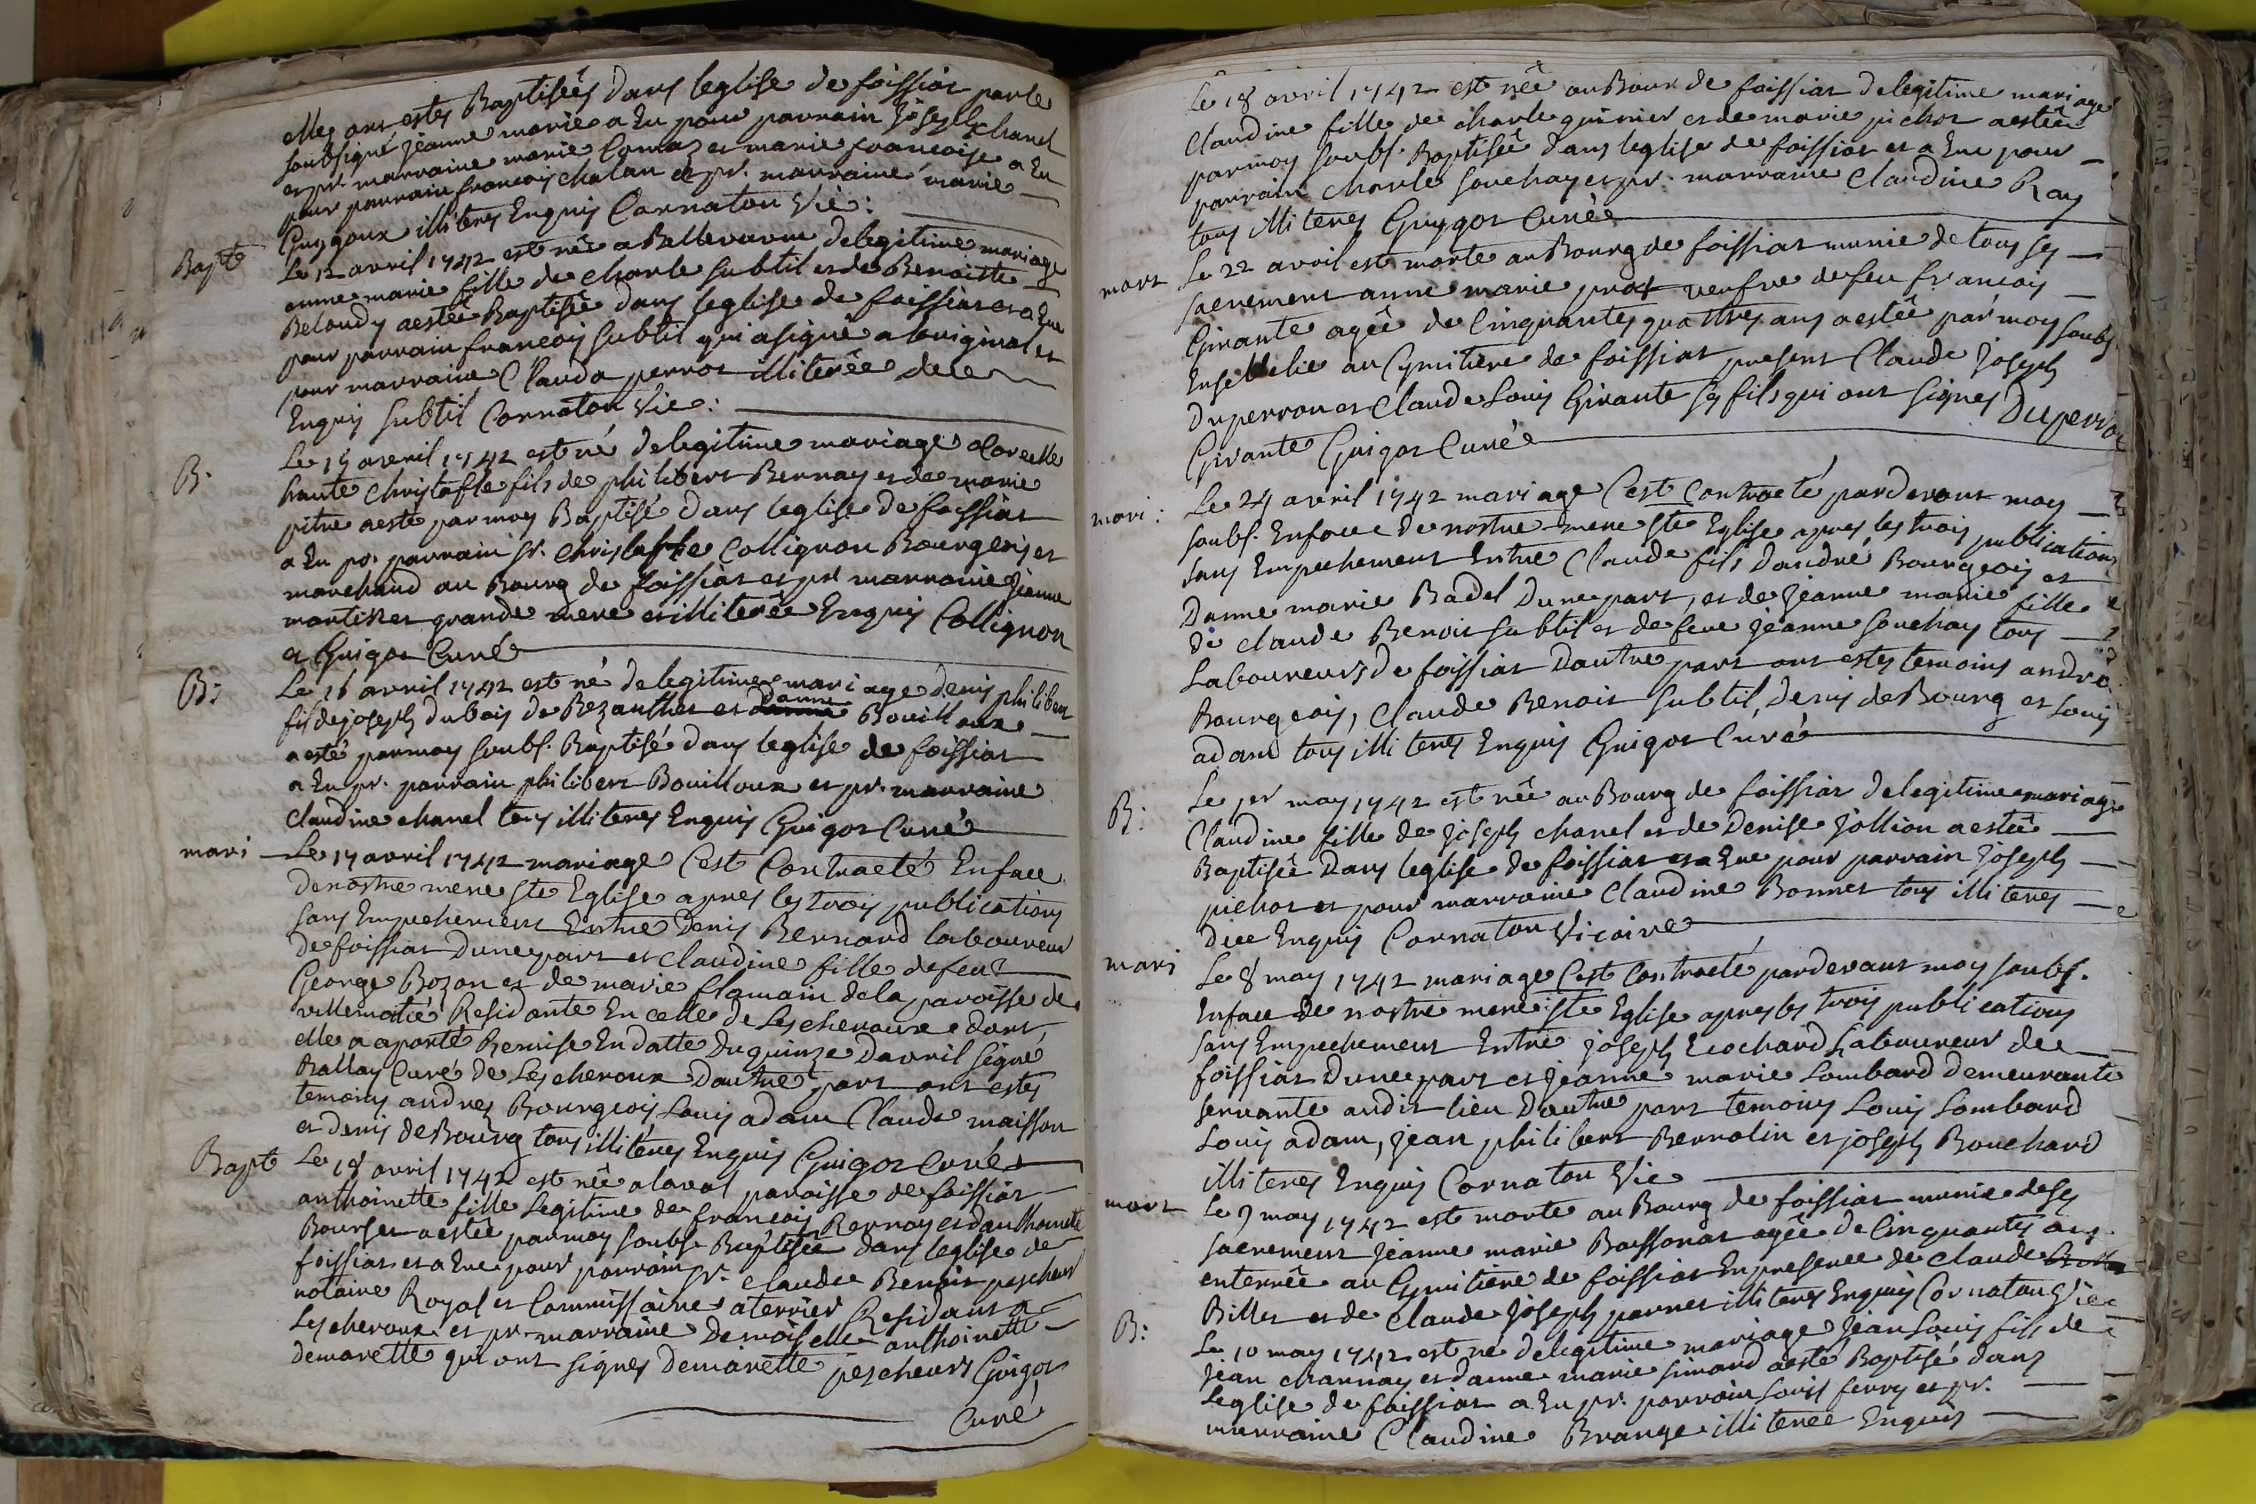 elles ont estes Baptisées dans leglise de foissiat par le
soubsigné jeanne marie a Eu pour parrain Joseph chanel
et pr. marraine marie Comaz et marie francoise a Eu
pour parrain francois chalan et pr. marraine marie
Guygoux illiteres Enquis Cornaton Vic:
Bapt Le 12 avril 1742 est née a Bellevavre delegitime mariage
anne marie fille de charle subtil et de Benoiste
Beloudy aestée Baptisée dans leglise de foissiat et a Eue
pour parrain francois subtil qui asigné a loriginal et
pour marraine Clauda perrot illiterée de ce
Enquis subtil Cornaton Vic:
B. Le 15 avril 1742 est né delegitime mariage
haute Christofle fils de philibert Bernay et de marie
pitre aesté par moy Baptisé dans leglise de foissiat
a Eu pr. parrain sr. Christofle Collignon Bourgeois et
marchand au Bourg de foissiat et pr marraine Jeanne
martinet grande mere et illiterée Enquis Collignon
et Guigot Curé
B: Le 16 avril 1742 est né delegitime mariage denis philibert
fils de joseph dubois de Bezanthet et Danne Bouilloux
aesté parmoy soubs. Baptisé dans leglise de foissiat
a Eu pr. parrain philibert Bouilloux et pr. marraine
Claudine chanel tous illiteres Enquis Guigot Curé
mari Le 17 avril 1742 mariage Cest Contracté Enface
denostre mere ste Eglise apres les trois publications
sans Empechement Entre Denis Bernard laboureur
de foissiat Dune part et Claudine fille defeu
George Bozon et de marie flamain dela paroisse de
villemotié Residante En celle de Lescheroux dont
elle a aporté Remise En datte Du quinze Davril signé
Rallay Curé de Lescheroux Dautre part ont estes
temoins andres Bourgeois Louis adam Claude maisson
et denis deBourg tous illiteres Enquis Guigot Curé
Bapt Le 18 avril 1742 est née alaval paroisse de foissiat
anthoinette fille Legitime de francois Bernay et danthoinette
Bourset aestée parmoy soubs. Baptisée dans leglise de
foissiat et a Eue pour parrain sr. claude Benoit pescheur
notaire Royal et Commissaire aterrier Residant a
Lescheroux et pr. marraine Demoiselle anthoinette
demarette qui ont signes Demarette pescheurs Guigot
Curé
Le 18 avril 1742 est née au Bourg de foissiat delegitime mariage
Claudine fille de charle guirier et de marie pichot aestée
parmoy soubs. Baptisée dans leglise de foissiat et a Eue pour
parrain charle souchay et pr. marraine Claudine Ray
tous illiteres Guygot Curée
mort Le 22 avril est morte au Bourg de foissiat munie de tous ses
sacrement anne marie prost veufve de feu francois
Girante agée de Cinquantes quattres ans aestée par moy soubs
Ensevelie au Cymitiere de foissiat present Claude Joseph
Duperron et Claude Louis Girante ses fils qui ont signes Duperron
Girante Guigot Curée
mari: Le 24 avril 1742 mariage Cest Contracté pardevant moy
soubs. Enface De nostre mere ste Eglise apres les trois publications
sans Empechement Entre Claude fils Dandré Bourgeois et
Danne marie Badel Dune part, et de Jeanne marie fille
de claude Benoit subtil et de feue Jeanne souchay tous
Laboureurs de foissiat Dautre part ont estes temoins andré
Bourgeois, Claude Benoit subtil, denis de Bourg et Louis
adam tous illiteres Enquis Guigot Curé
B: Le 1er may 1742 est née au Bourg de foissiat delegitime mariage
Claudine fille de Joseph chanel et de Denise Jollion aestée
Baptisée Dans leglise de foissiat et a Eue pour parrain Joseph
pichot et pour marraine Claudine Bonnet tous illiteres
dece Enquis Cornaton Vicaire
mari Le 8 may 1742 mariage Cest Contracté pardevant moy soubs.
Enface de nostre mere ste Eglise apres les trois publications
sans Empechement Entre joseph Ecochard Laboureur de
foissiat Dune part et Jeanne marie Lombard demeurante
servante audit lieu Dautre part temoins Louis Lombard
Louis adam, jean philibert Bernolin et joseph Bouchard
illiteres Enquis Cornaton Vic
mort Le 9 may 1742 est morte au Bourg de foissiat munie de ses
sacrement Jeanne marie Boissonat agée de Cinquantes ans
enterrée au Cymitiere de foissiat En presence de claude
Billet et de Claude Joseph parnet illiteres Enquis Cornaton Vic
B: Le 10 may 1742 est né delegitime mariage Jean Louis fils de
jean channay et danne marie simard aesté Baptisé dans
Leglise de foissiat a Eu pr. parrain Louis ferry et pr.
marraine Claudine Brange illiteree Enquis